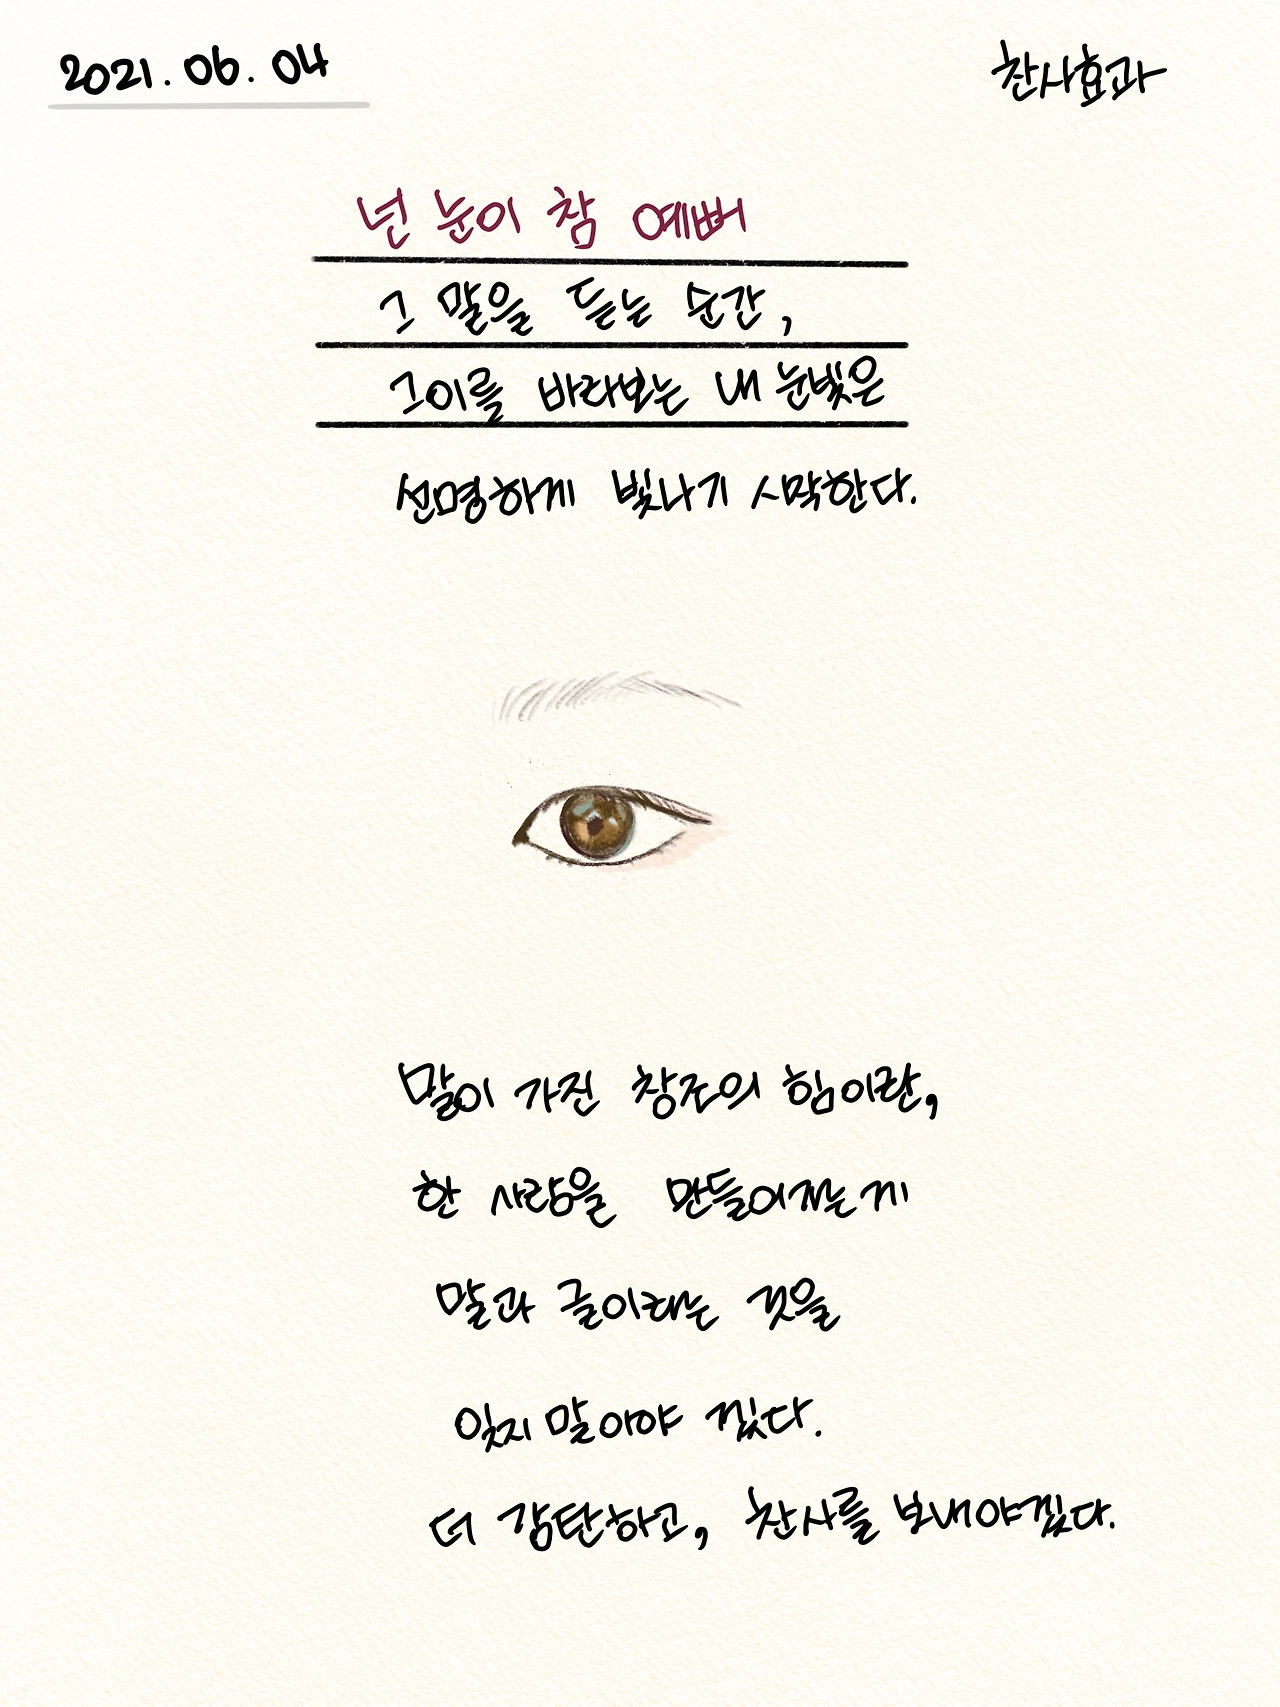 2021. 06. 04
찬사효과
넌 눈이 참 예뻐
그 말을 듣는 순간,
그이를 바라보는 내 눈빛은
선명하게 빛나기 시작한다.
말이 가진 창조의 힘이란,
한 사람을 만들어지는게
말과 글이라는 것을
잊지 말아야 겠다.
더 감탄하고, 찬사를 보내야겠다.